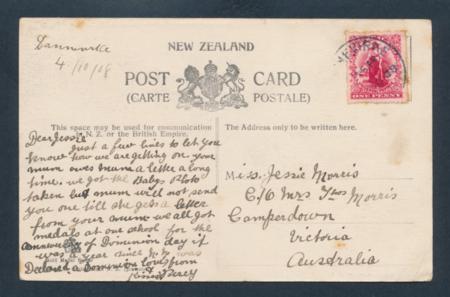 Dannevirke
4/10/08
NEW ZEALAND
POST CARD
(CARTE POSTALE)
This space may be used for communication
in N.Z. or the British Empire.
The Address only to be written here.
ONE PENNY
Dear Jessie
Just a few lines to let you
know how we are getting on your
mum owes mum a letter a long
time, we got the Babys Photo
taken but mum will not send
you one till she gets a letter
from your mum we all got
medals at our school for the
of Dominion day it
was a year since N.Z. was
Declared a Dominion love from
Percy
Miss Jessie Morris
C/o Mrs Thos Morris
Camperdown
Victoria
Australia